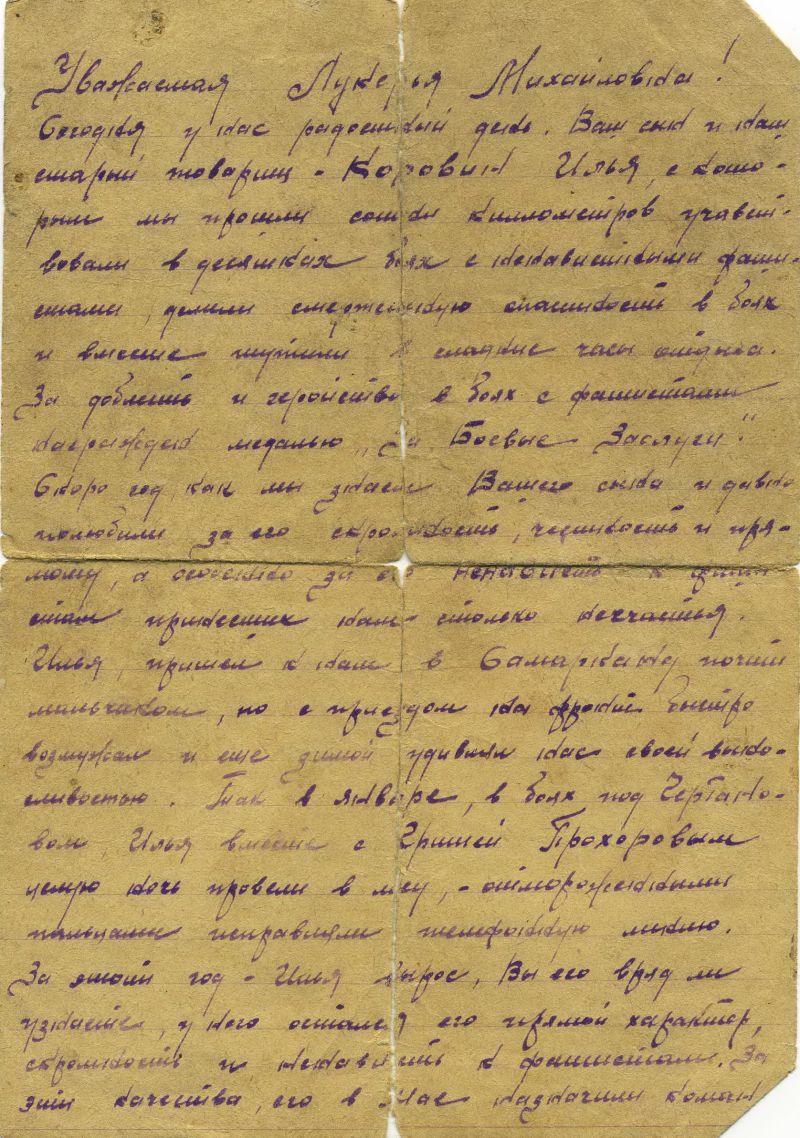 Уважаемая Лукерья Михайловна!
Сегодня у нас радостный день. Ваш сын и наш
старый товарищ - Коровин Илья, с кото-
рым мы прошли сотни километров учавст-
вовали в десятках боях с ненавистными фаши-
стами, делили смертельную опасность в боях
и вместе шутили в сладкие часы отдыха.
За доблесть и геройство в боях с фашистами
награжден медалью „За Боевые Заслуги".
Скоро год, как мы знаем Вашего сына и давно
полюбили за его скромность, честность и пря-
моту, а особенно за его ненависть к фаши
стам принесших нам столько несчастья.
Илья, пришел к нам в Самарканд почти
мальчаком, но с приездом на фронт быстро
возмужал и еще зимой удивлял нас своей выно-
сливостью. Так в январе, в боях под Чертано-
вом, Илья вместе с Гришей Прохоровым
целую ночь провели в лесу, - отмороженными
пальцами исправляли телефонную линию.
За этот год - Илья вырос, Вы его вряд ли
узнаете, у него остался его прямой характер,
скромность и ненависть к фашистам. За
эти качества, его в Мае назначили коман